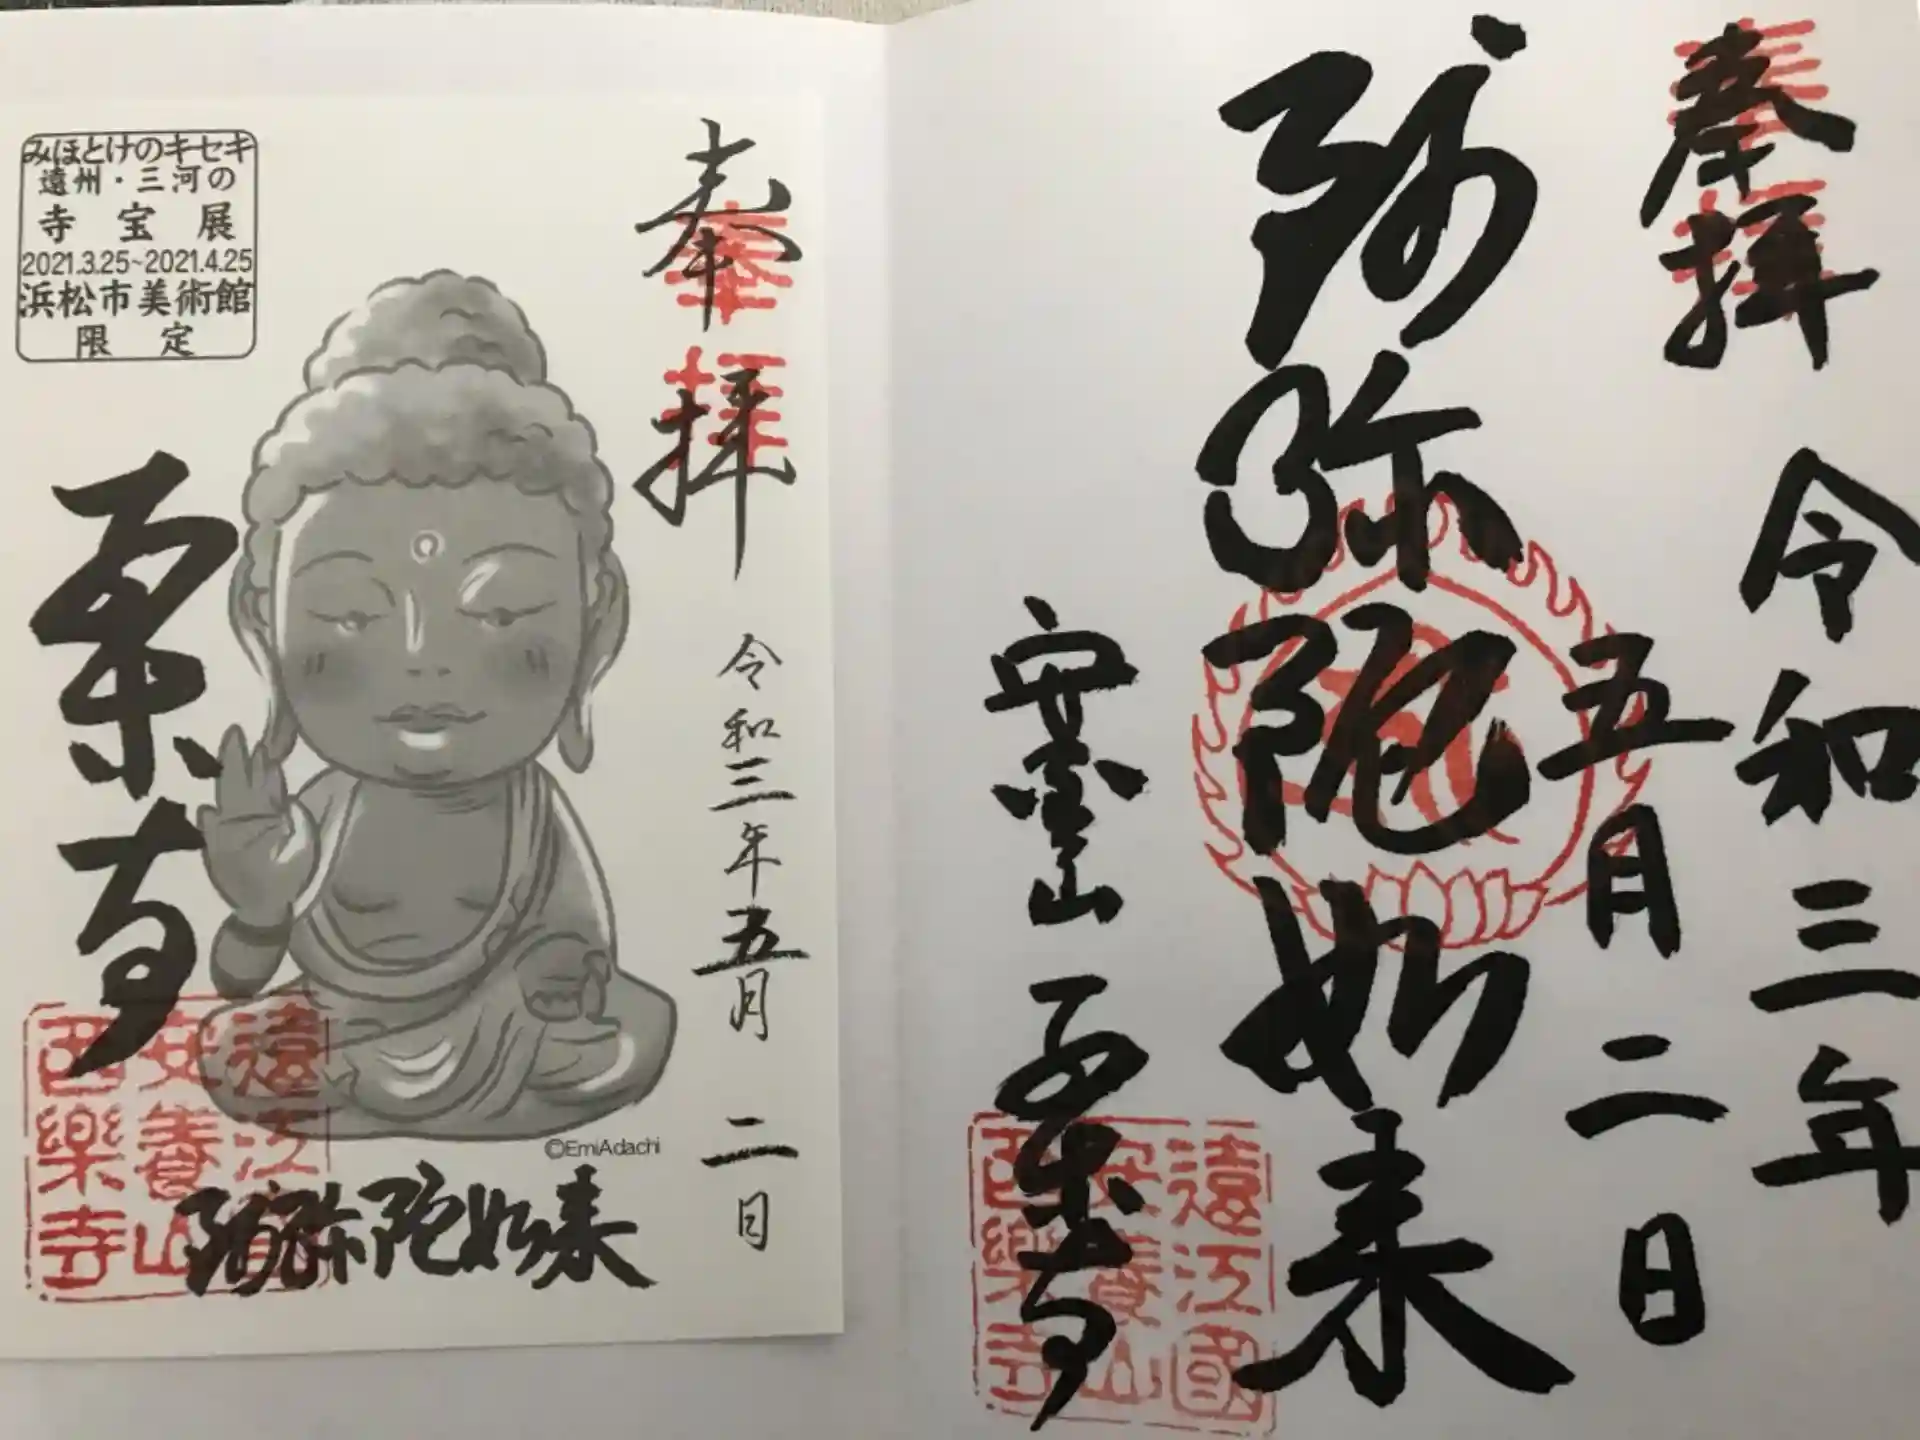 奉拝
令和三年
五月二日
阿弥陀如来
安養山
西楽寺
遠江國
安養山
西樂寺
みほとけのキセキ
遠州・三河の
寺宝展
2021.3.25~2021.4.25
浜松市美術館
限定
奉拝
令和三年五月二日
西楽寺
©EmiAdachi
阿弥陀如来
遠江國
安養山
西樂寺